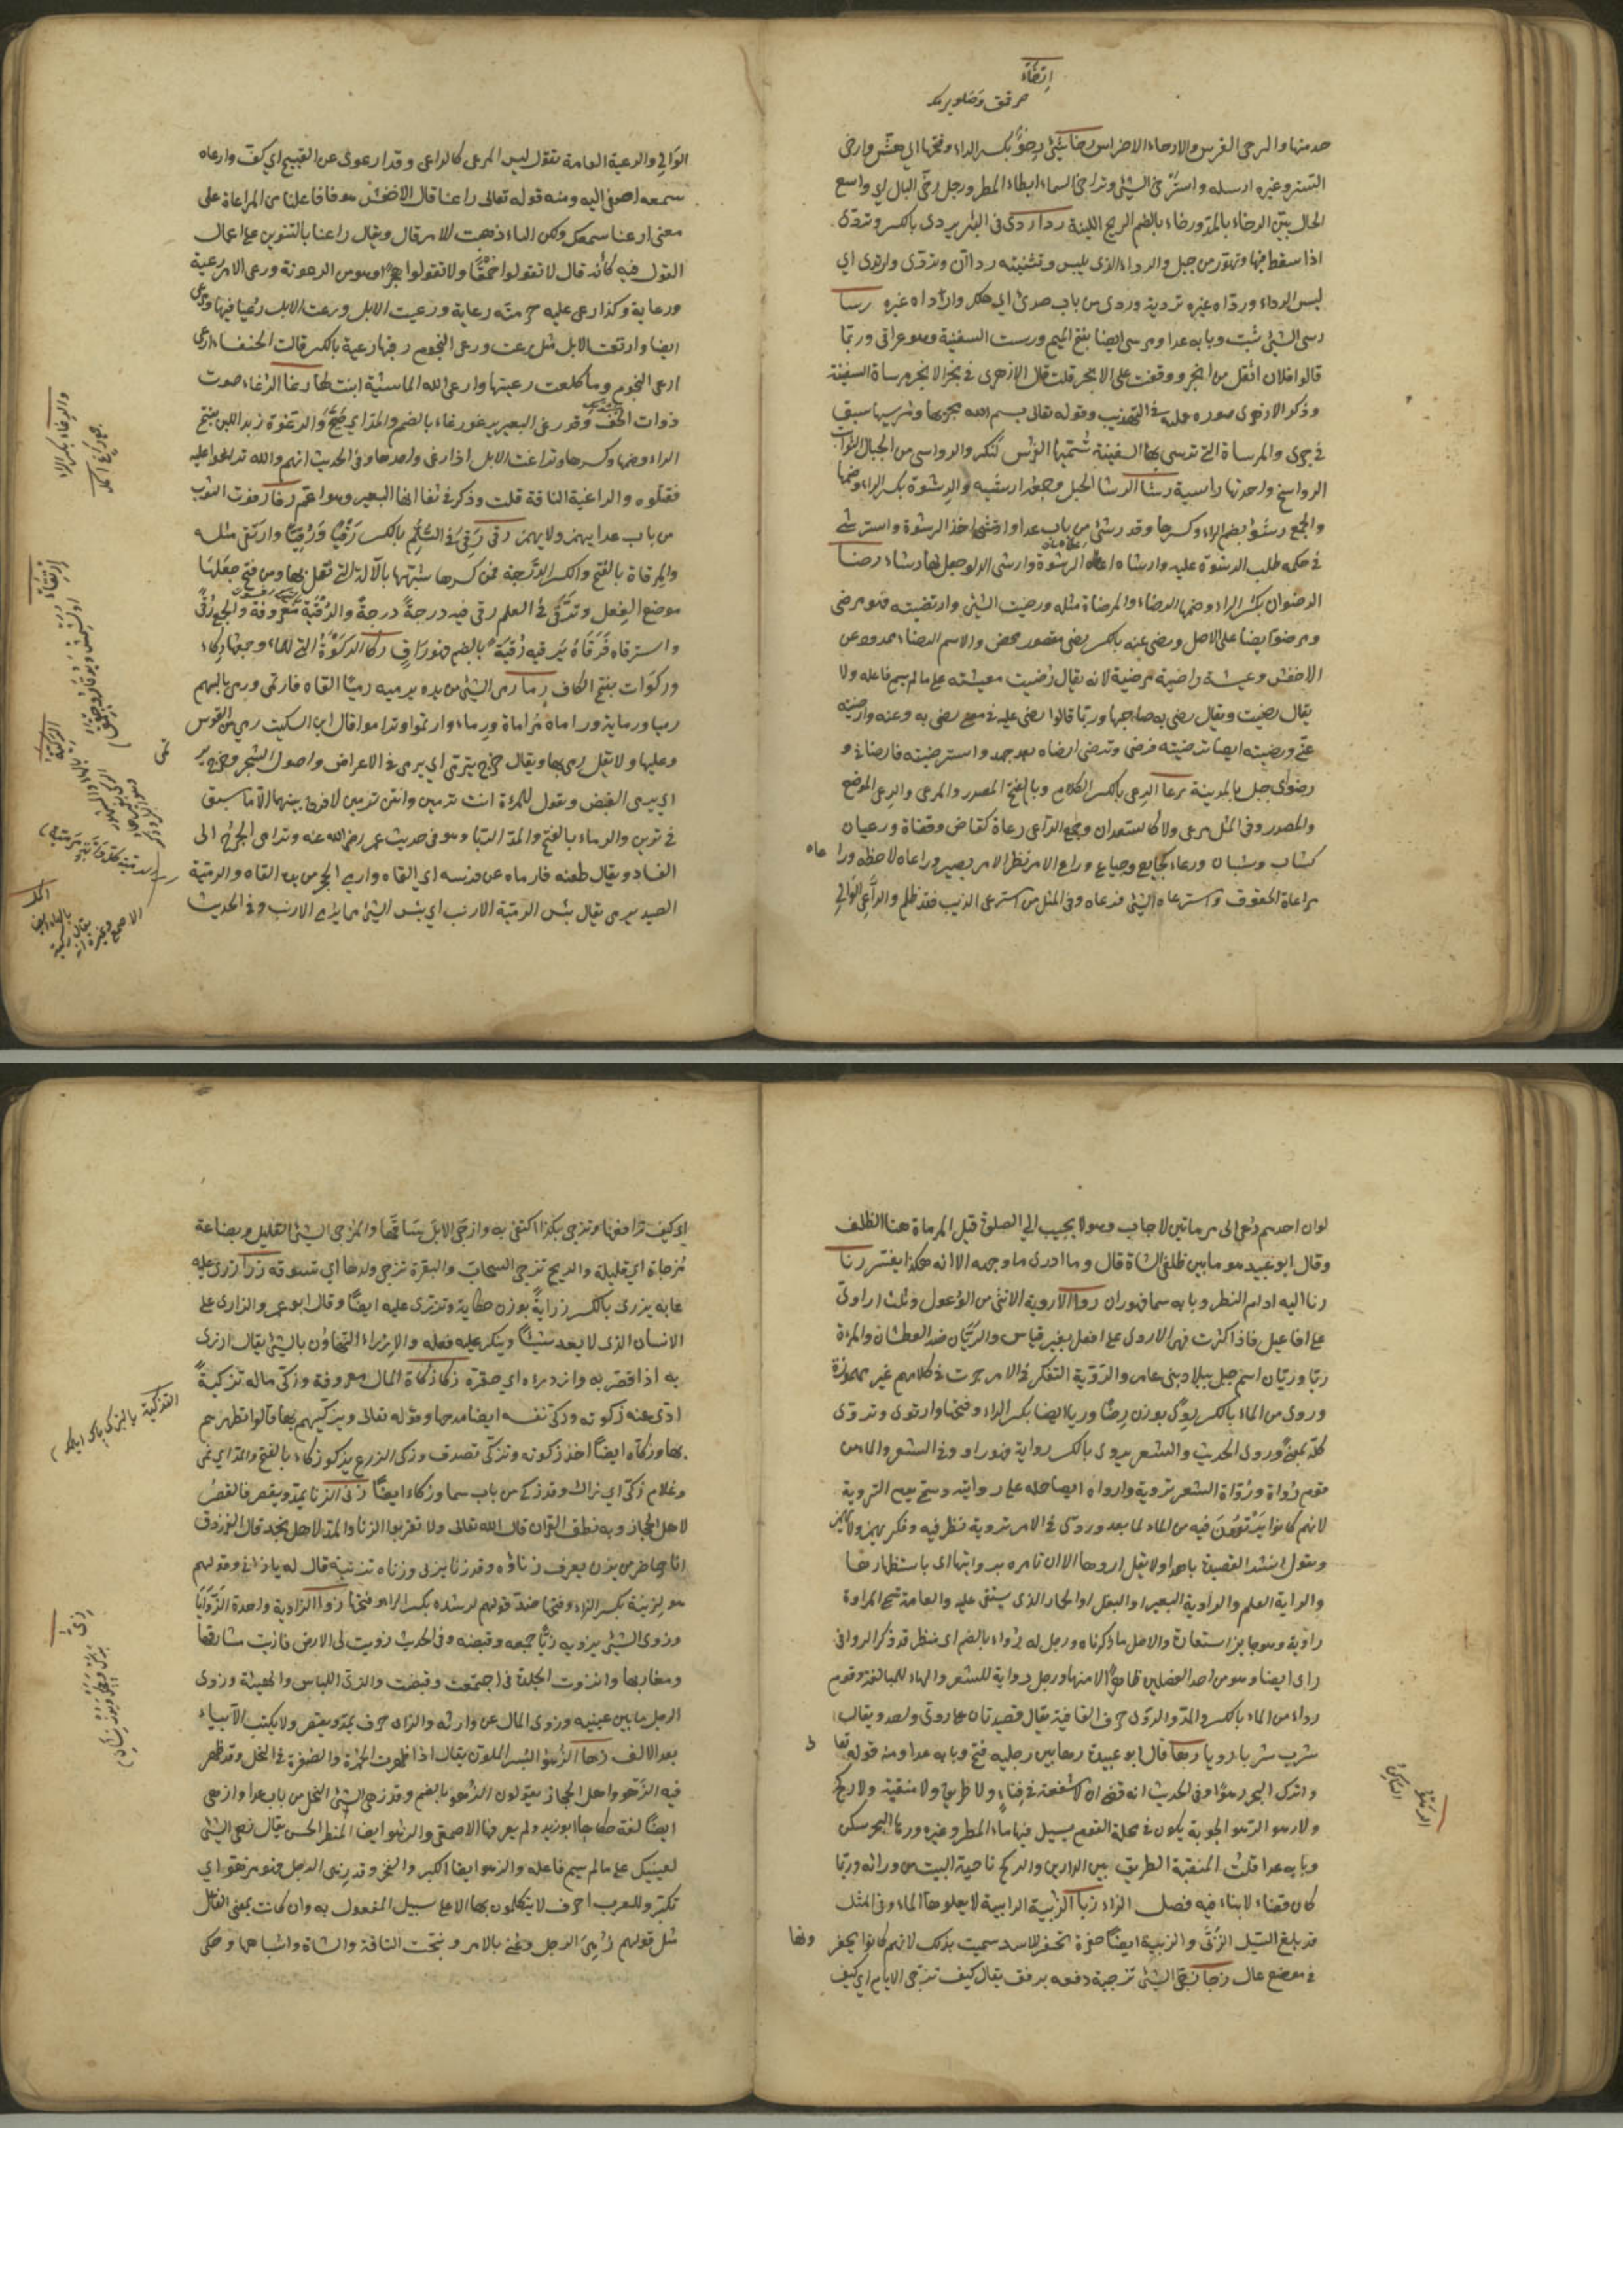 ارتخاء
حدمتها والرحى الضرس والارحاء الاضراس رخا شئ رخو بكسر الراء وفتحها اي هش وارخى
الستر وغيره ارسله واسترخى الشئ وتراخى السماء ابطاء المطر ورجل رخى البال اي واسع
الحال بين الرخاء بالمد ورخاء بالضم الريح اللينة ردا ردى فى البئر يردى بالكسر وتردى
اذا سقط فيها وتهور من جبل والرداء الذى يلبس وتثنيته رداان وتردى وارتدى اي
لبس الرداء ورداه غيره تردية وردى من باب صدى اي هلك وارداه غيره رسا
رسى الشئ ثبت وبابه عدا ومرسى ايضا بفتح الميم ورست السفينة وهو عراقى وربما
قالوا فلان اثقل من انجر ووقفت على الانجر قلت قال الازهرى فى نجر الانجر مرساة السفينة
وذكر الازهرى صورة عمله فى التهذيب وقوله تعالى بسم الله مجريها ومرسيها سبق
فى جرى والمرساة التى ترسى بها السفينة تسميها الفرس لنكر والرواسى من الجبال الثوابت
الرواسخ واحدتها راسية رشا الرشا الحبل وجمعه ارشية والرشوة بكسر الراء وضمها
والجمع رشى بضم الراء وكسرها وقد رشى من باب عدا وارتشى اخذ الرشوة واسترشى
فى حكمه طلب الرشوة عليه وارشاه اعطاه الرشوة وارشى الدلو جعل لها رشاء رضا
الرضوان بكسر الراء وضمها الرضاء والمرضاة مثله ورضيت الشئ وارتضيته فهو مرضى
ومرضو ايضا على الاصل ورضى عنه بالكسر رضى مقصور محض والاسم الرضاء ممدود عن
الاخفش وعيشة راضية مرضية لانه يقال رضيت معيشته على ما لم يسم فاعله ولا
يقال رضيت ويقال رضى به صاحبا وربما قالوا رضى عليه فى معنى رضى به وعنه وارضيته
عنى ورضيته ايضا ترضيته فرضى وترضى ارضاه بعد جهد واسترضيته فارضانى و
رضوى جبل بالمدينة رعا الرعى بالكسر الكلاء وبالفتح المصدر والمرعى والرعى الموضع
والمصدر وفى المثل مرعى ولا كالسعدان وجمع الراعى رعاة كقاض وقضاة ورعيان
كشاب وشبان ورعاء كجايع وجياع وراعى الامر نظر الامر يصير وراعاه لاحظه ورا
عاه
مراعاة الحقوق واسترعاه الشئ فرعاه وفى المثل من استرعى الذئب فقد ظلم والراعى الوالى
الوالى والرعية العامة يقول ليس المرعى كالراعى وقد ارعوى عن القبيح اي كف وارعاه
سمعه اصغى اليه ومنه قوله تعالى راعنا قال الاخفش هو فاعلنا من المراعاة على
معنى ارعنا سمعك ولكن الياء ذهبت للامر قال ويقال راعنا بالتنوين على اعمال
القول فيه كأنه قال لا تقولوا حمقا ولا تقولوا هجرا وهو من الرعونة ورعى الامير رعية
ورعاية وكذا رعى عليه حرمته رعاية ورعيت الابل ورعت الابل رعيا فيهما ومرعى
ايضا وارتعت الابل مثل رعت ورعى النجوم رقبها رعية بالكسر قالت الخنساء ارعى
ارعى النجوم وما كلفت رعيتها وارعى الله الماشية انبت لها رغا الرغاء صوت
ذوات الخف وقد رغى البعير يرغو رغاء بالضم والمد اي ضج والرغوة زبد اللبن بفتح
الراء وضمها وكسرها وتراغت الابل اذا رغى واحد هنا وفى الحديث انهم والله تراغوا عليه
فقتلوه والراغية الناقة قلت وذكر فى ثغا انها البعير وهو اعم رفا رفوت الثوب
من باب عدا يهمز ولا يهمز رقى رقى فى السلم بالكسر رقيا ورقيا وارتقى مثله
والمرقاة بالفتح والكسر الدرجة فمن كسرها شبهها بالآلة التى تعمل بها ومن فتح جعلها
موضع الفعل وترقى فى العلم رقى فيه درجة درجة والرقية معروفة والجمع رقى
واسترقاه فرقاه يرقيه رقية بالضم فهو راق ركا الركوة التى للماء وجمعها ركاء
وركوات بفتح الكاف رما رمى الشئ من يده يرميه رميا القاه فارتمى ورمى بالسهم
رميا ورماية وراماه مراماة ورماء وارتموا وتراموا قال ابن السكيت رمى عن القوس
وعليها ولا تقل رمى بها ويقال خرج يترمى اي يرمى فى الاغراض واصول الشجر وخرج ير
تمى
اي يرمى القنص ويقول للمرءة انت ترمين وانتن ترمين لا فرق بينهما الا ما سبق
فى ترين والرماء بالفتح والمد الربا وهو فى حديث عمر رضى الله عنه وترامى الجرح الى
الفساد ويقال طعنه فارماه عن فرسه اي القاه وارمى الحجر من يده القاه والرمية
الصيد يرمى يقال بئس الرمية الارنب اي بئس الشئ مما يرمى الارنب وفى الحديث
لو ان احدهم دعى الى مرماتين لاجاب وهو لا يجيب الى الصلوة قيل المرماة هنا الظلف
وقال ابو عبيد هو ما بين ظلفى الشاة قال وما ادرى ما وجهه الا انه هكذا يفسر رنا
رنا اليه ادام النظر وبابه سما فهو ران روا الاروية الانثى من الوعول وثلث اراوى
على افاعيل فاذا كثرت فهى الاروى على افعل بغير قياس والريان ضد العطشان والمرءة
ريا وريان اسم جبل ببلاد بنى عامر والروية التفكر فى الامر جرت فى كلامهم غير مهموزة
وروى من الماء بالكسر يروى بوزن رضا وريا ايضا بكسر الراء وفتحها وارتوى وتروى
كله بمعنى وروى الحديث والشعر يروى بالكسر رواية فهو راو وفى الشعر والماء من
قوم رواة ورواه الشعر تروية وارواه ايضا حمله على روايته وسمى يوم التروية
لانهم كانوا يرتوون فيه من الماء لما بعد وروى فى الامر تروية نظر فيه وفكر يهمز ولا يهمز
ويقول انشد القصيدة يا هذا ولا تقل اروها الا ان تامره بروايتها اى باستظهارها
والراية العلم والراوية البعير او البغل او الحمار الذى يستقى عليه والعامة تسمى المزادة
راوية وهو جايز استعارة والاصل ما ذكرناه ورجل له رواء بالضم اى منظر قد ذكر الروا فى
راى ايضا وهو من احد الفصلين ظاهرا لا منهما ورجل رواية للشعر والهاء للمبالغة وقوم
رواء من الماء بالكسر والمد والروى حرف القافية يقال قصيدتان على روى واحد ويقال
شرب شربا رويا رها قال ابو عبيدة رها بين رجليه فتح وبابه عدا ومنه قوله تعا
لى
واترك البحر رهوا وفى الحديث انه قضى ان لا شفعة فى فناء ولا طريق ولا منقبة ولا ركح
ولا رهو الرهو الجوبة يكون فى محلة القوم يسيل فيها ماء المطر وغيره ورها البحر سكن
وبابه عدا قلت المنقبة الطريق بين الدارين والركح ناحية البيت من ورائه وربما
كان فضاء لا بناء فيه فصل الزاء زبا الزبية الرابية لا يعلوها الماء وفى المثل
قد بلغ السيل الزبى والزبية ايضا حفرة تحفر للاسد سميت بذلك لانهم كانوا يحفر
ونها
فى موضع عال زجا زجى الشئ تزجية دفعه برفق يقال كيف تزجى الايام اي كيف
اي كيف تدافعها وتزجى بكذا اكتفى به وازجى الابل ساقها والمزجى الشئ القليل وبضاعة
مزجاة اي قليلة والريح تزجى السحاب والبقرة تزجى ولدها اي تسوقه زرا زرى عليه
عابه يزرى بالكسر زراية بوزن حكاية وتزرى عليه ايضا وقال ابو عمر والزارى على
الانسان الذى لا يعد شيئا وينكر عليه فعله والازراء التهاون بالشئ يقال ازرى
به اذا قصر به وازدراه اي حقره زكا زكاة المال معروفة وزكى ماله تزكية
ادى عنه زكوته وزكى نفسه ايضا مدحها وقوله تعالى ويزكيهم بها قالوا تطهرهم
بها وزكاه ايضا اخذ زكوته وتزكى تصدق وزكى الزرع يزكو زكاء بالفتح والمد اي نمى
وغلام زكى اي زاك وقد زكى من باب سما وزكاء ايضا زنى الزنا يمد ويقصر فالقصر
لاهل الحجاز وبه نطق القران قال الله تعالى ولا تقربوا الزنا والمد لاهل نجد قال الفرزدق
ابا حاضر من يزن يعرف زناؤه وقد زنا يزنى وزناه تزنية قال له يا زانى وقولهم
هو لزنية بكسر الزاء وفتحها ضد قولهم لرشده بكسر الراء وفتحها زوا الزاوية واحدة الزوايا
وزوى الشئ يزويه زيا جمعه وقبضه وفى الحديث زويت لى الارض فاريت مشارقها
ومغاربها وانزوت الجلدة فى اجتمعت وقبضت والزى اللباس والهيئة وزوى
الرجل ما بين عينيه وزوى المال عن وارثه والزاى حرف يمد ويقصر ولا يكتب الا بياء
بعد الالف زها الزهو البسر الملون يقال اذا ظهرت الحمرة والصفرة فى النخل وقد ظهر
فيه الزهو واهل الحجاز يقولون الزهو بالضم وقد زهى الشئ النخل من باب عدا وازهى
ايضا لغة حكاها ابو زيد ولم يعرفها الاصمعى والزهو ايضا المنظر الحسن يقال زهى الشئ
لعينيك على ما لم يسم فاعله والزهو ايضا الكبر والفخر وقد زهى الرجل فهو مزهو اي
تكبر وللعرب احرف لا يتكلمون بها الا على سبيل المفعول به وان كانت بمعنى الفاعل
مثل قولهم زهى الرجل وعنى بالامر ونتجت الناقة والشاة واشباهها وحكى